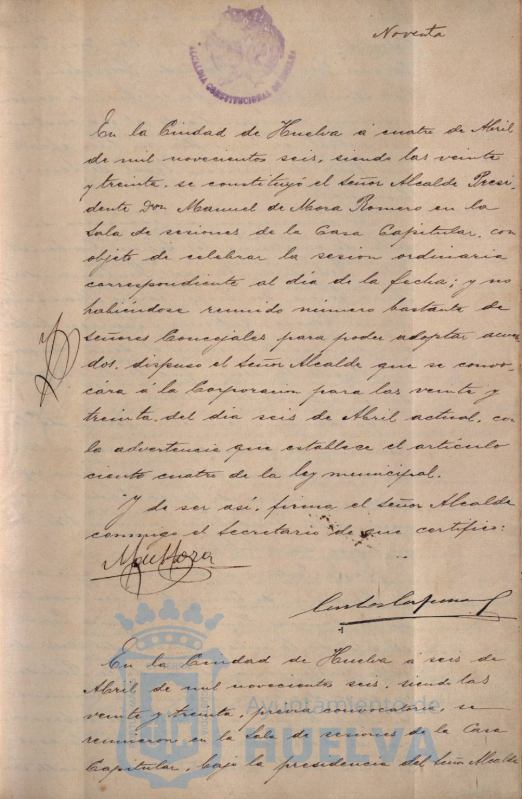 Noventa
ALCALDIA CONSTITUCIONAL DE HUELVA
En la Ciudad de Huelva á cuatro de Abril
de mil novecientos seis, siendo las veinte
y treinta, se constituyó el Señor Alcalde Presi-
dente Don Manuel de Mora Romero en la
Sala de sesiones de la Casa Capitular, con
objeto de celebrar la sesión ordinaria
correspondiente al día de la fecha; y no
habiéndose reunido número bastante de
Señores Concejales para poder adoptar acuer-
dos, dispuso el Señor Alcalde que se convo-
cára á la Corporación para las veinte y
treinta del día seis de Abril actual, con
la advertencia que establece el artículo
ciento cuatro de la ley municipal.
Y de ser así, firma el Señor Alcalde
conmigo el Secretario de que certifico:
M de Mora
En la Ciudad de Huelva á seis de
Abril de mil novecientos seis, siendo las
veinte y treinta, previa convocatoria se
reunieron en la Sala de sesiones de la Casa
Capitular, bajo la presidencia del Señor Alcalde
Ayuntamiento de
HUELVA